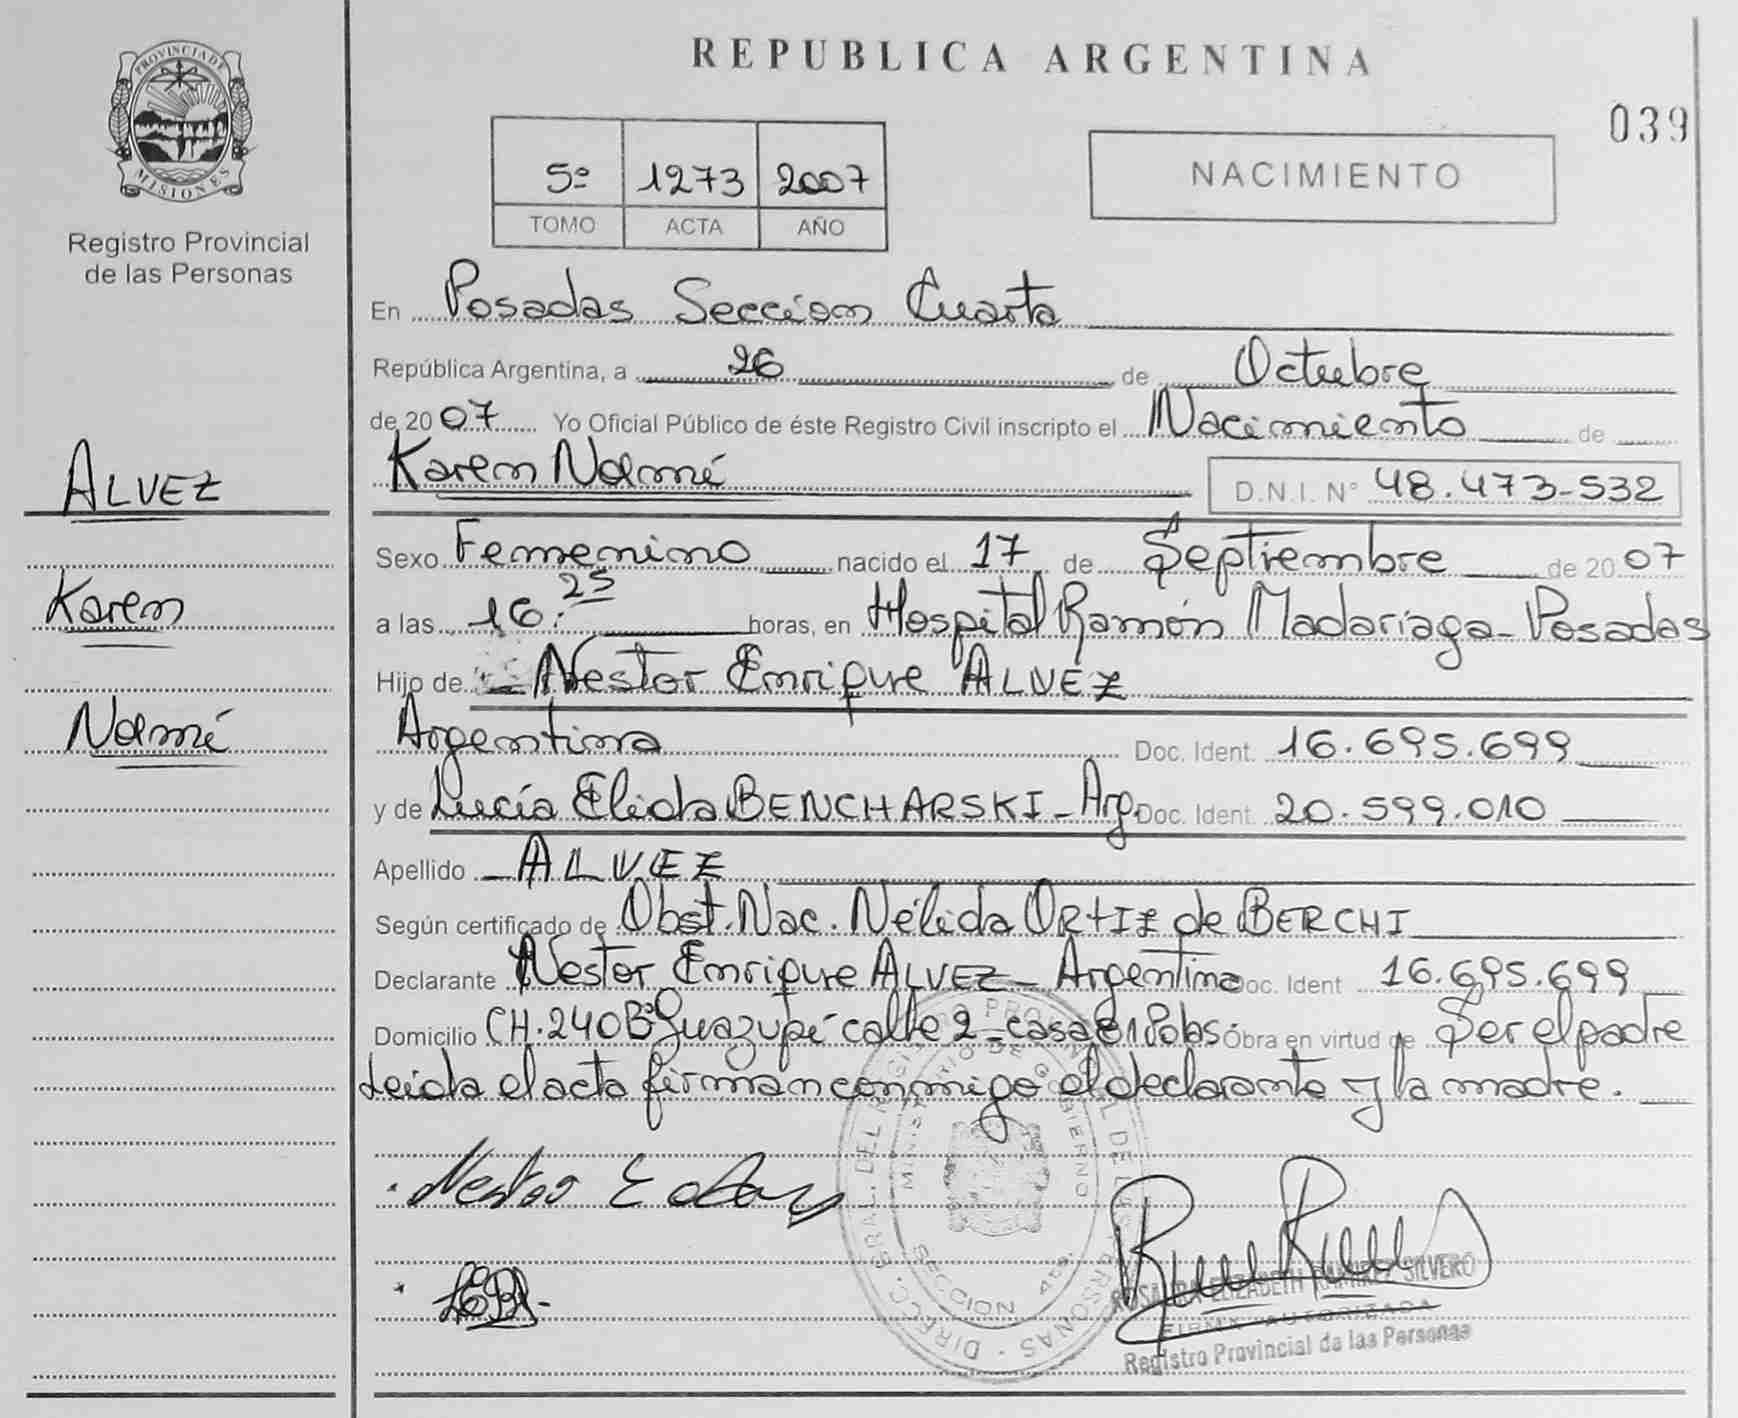 PROVINCIA DE
MISIONES
Registro Provincial
de las Personas
ALVEZ
Karem
Noemí
REPUBLICA ARGENTINA
039
5º 1273 2007
TOMO ACTA AÑO
NACIMIENTO
En Posadas Seccion Cuarta
República Argentina, a 26 de Octubre
de 2007 Yo Oficial Público de éste Registro Civil inscripto el Nacimiento de
Karem Noemí D.N.I. Nº 48.473-532
Sexo Femenino nacido el 17 de Septiembre de 2007
a las 16:25 horas, en Hospital Ramón Madariaga - Posadas
Hijo de Nestor Enrique ALVEZ
Argentina Doc. Ident. 16.695.699
y de Lucía Elida BENCHARSKI - Arg. Doc. Ident. 20.599.010
Apellido - ALVEZ
Según certificado de Obst. Nac. Nélida ORTIZ de BERCHI
Declarante Nestor Enrique ALVEZ - Argentina Doc. Ident 16.695.699
Domicilio CH. 240 Bº Guazupí calle 2 - casa 81 Pdas. Obra en virtud de Ser el padre
Leida el acta firman conmigo el declarante y la madre.
DIRECC. GRAL. DEL REGISTRO PROVINCIAL DE LAS PERSONAS
MINISTERIO DE GOBIERNO
SECCION 4ta.
Nestor E
ROSAURA ELIZABETH RAMIREZ SILVERO
FIRMA AUTORIZADA
Registro Provincial de las Personas